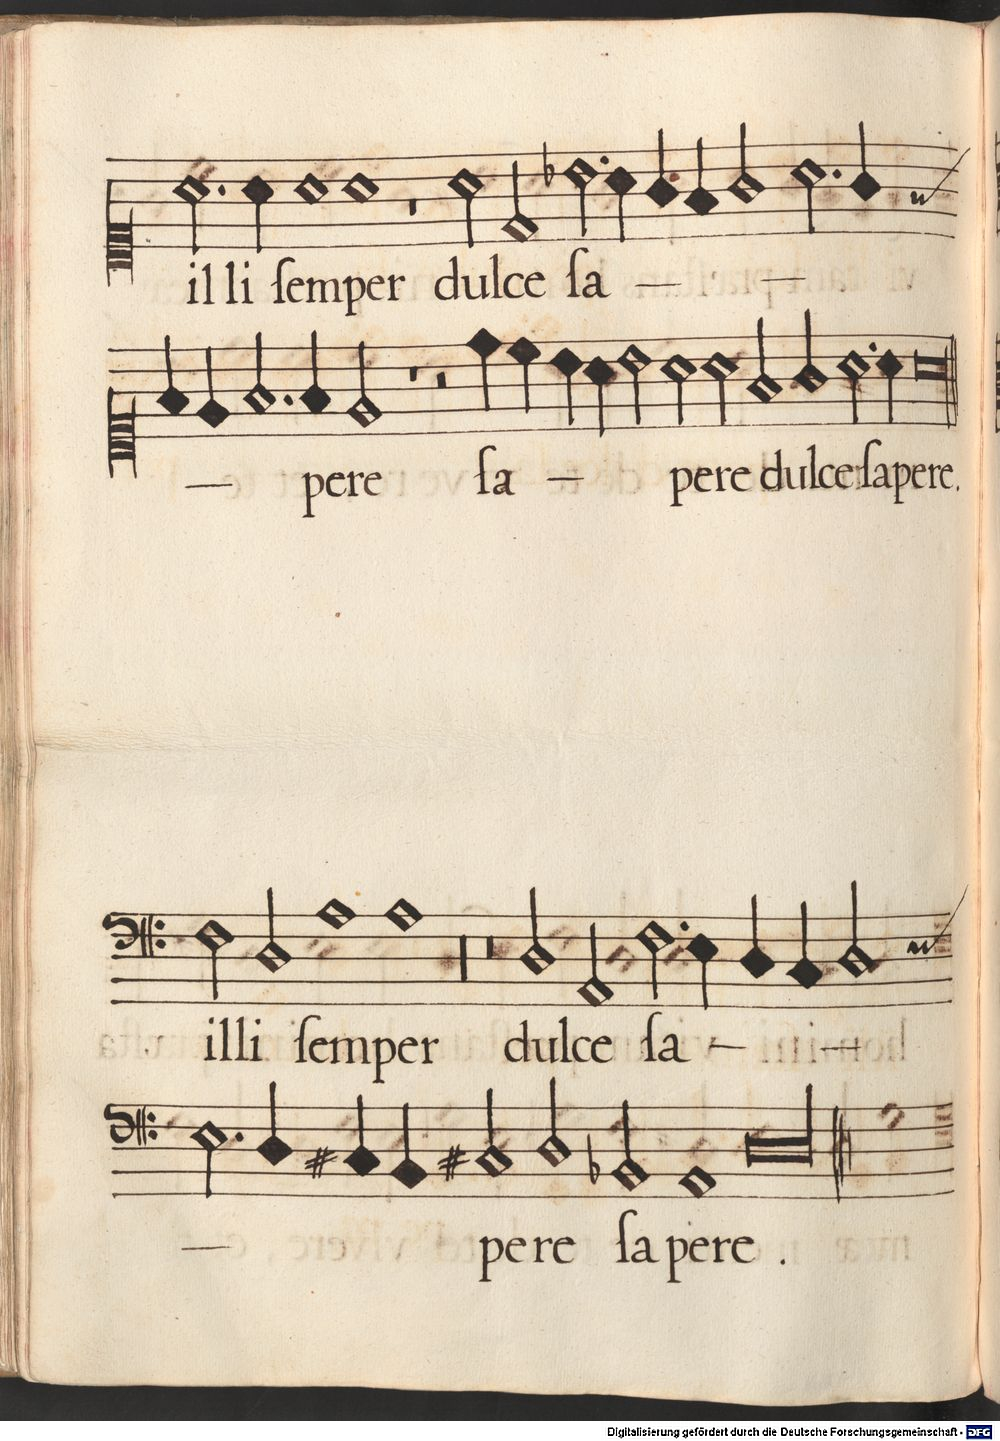 il li semper dulce sa — —
— pere sa — pere dulce sapere.
illi semper dulce sa — —
— pere sapere .
Digitalisierung gefördert durch die Deutsche Forschungsgemeinschaft - DFG